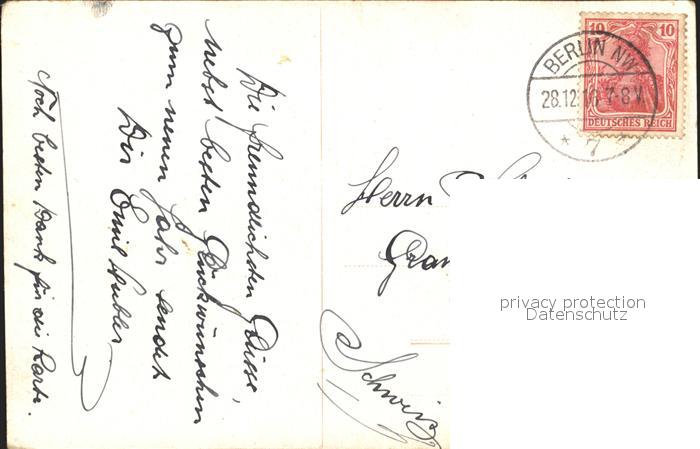 Die freundlichsten Grüsse,
nebst besten Glückwünschen
zum neuen Jahr sendet
Dir Emil
Noch besten Dank für die Karte.
10 10
DEUTSCHES REICH
BERLIN NW
28.12.16 7-8 V.
* 7
Herrn
Schweiz
privacy protection
Datenschutz